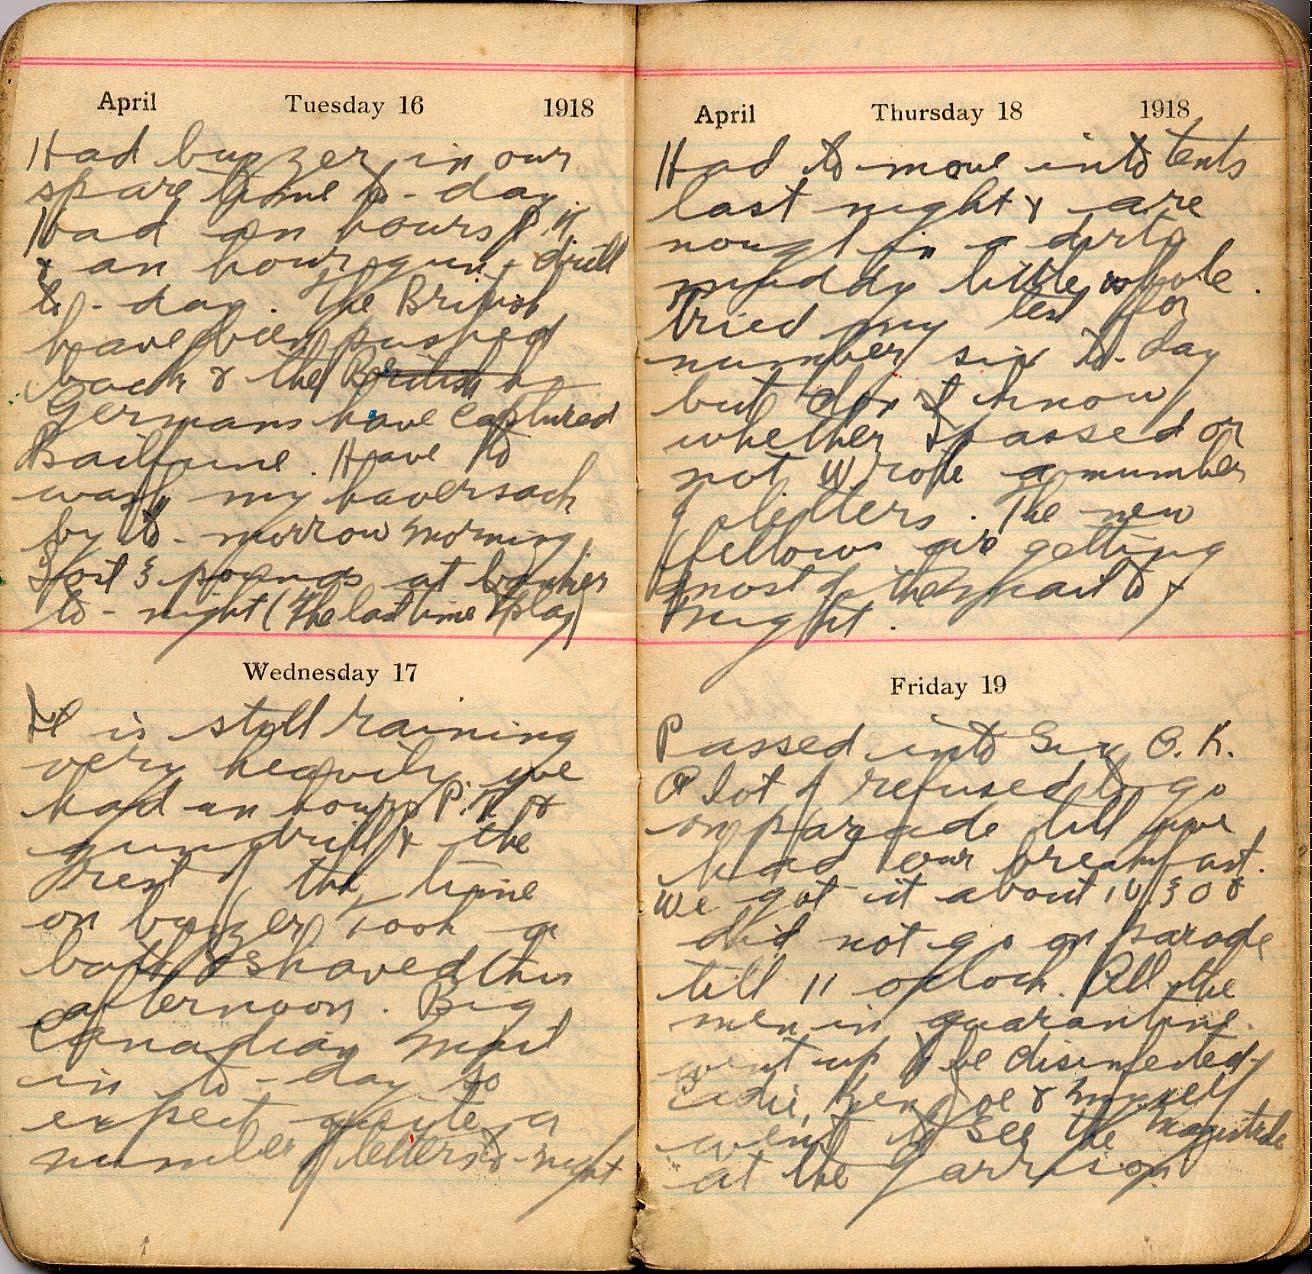 April Tuesday 16 1918
Had buzzer in our
spare time to-day.
Had an hours P.T.
& an hour gun-drill
to-day. The British
have been pushed
back & the British h
Germans have captured
Bailleul. Have to
wash my haversack
by to-morrow morning.
3 pounds at banker
to-night (The last time I play)
Wednesday 17
It is still raining
very heavily. We
had an hours P.T. &
gundrill & the
rest of the time
on buzzer. Took a
bath & shaved this
afternoon. Big
Canadian mail
in to-day so
expect quite a
number of letters to-night
April Thursday 18 1918
Had to move into tents
last night & are
now in a dirty
muddy little whole.
Tried my test for
number six to-day
but don't know
whether I passed or
not. Wrote a number
of letters. The new
fellows are getting
most of the mail to
night.
Friday 19
Passed into Six O.K.
A lot of refused to go
on parade till we
had our breakfast.
We got it about 10.30 &
did not go on parade
till 11 oclock. All the
men in quarantine
went up to be disinfected
& myself
went to see the Magistrate
at the Garrison